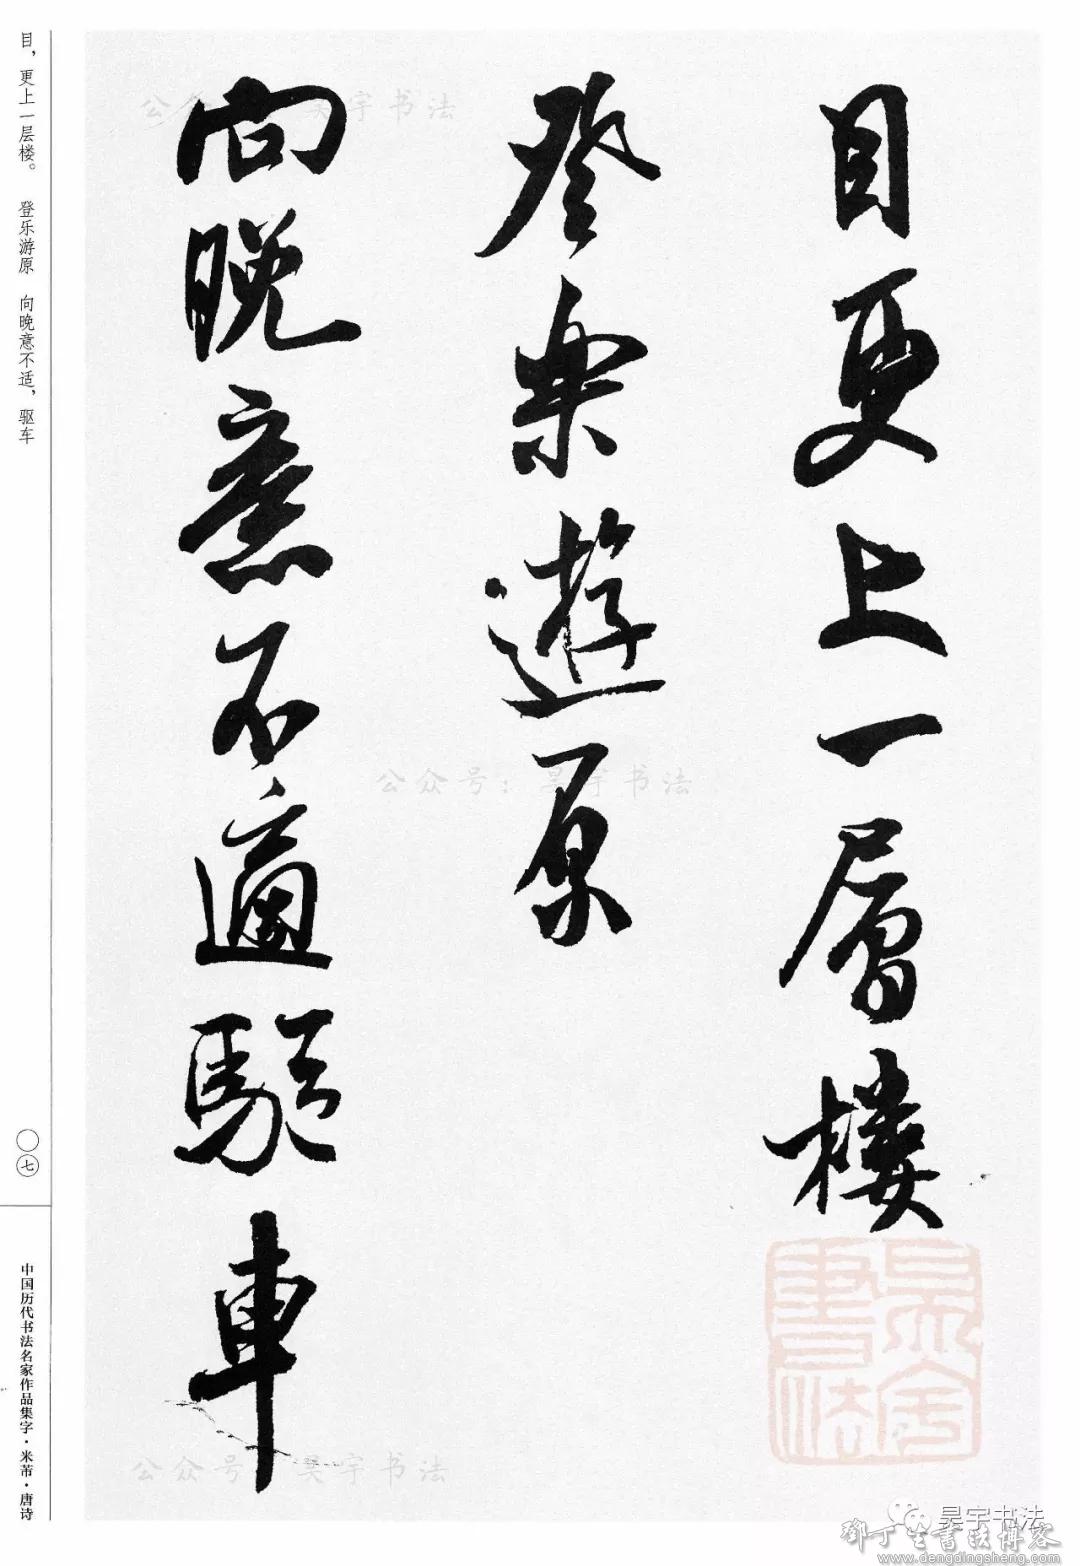 目更上一層樓
登樂遊原
向晚意不適驅車
目，更上一层楼。 登乐游原 向晚意不适，驱车
〇七
中国历代书法名家作品集字·米芾·唐诗
公众号：昊宇书法
公众号：昊宇书法
公众号：昊宇书法
昊宇書法
昊宇书法
邓丁生书法博客
www.dengdingsheng.com